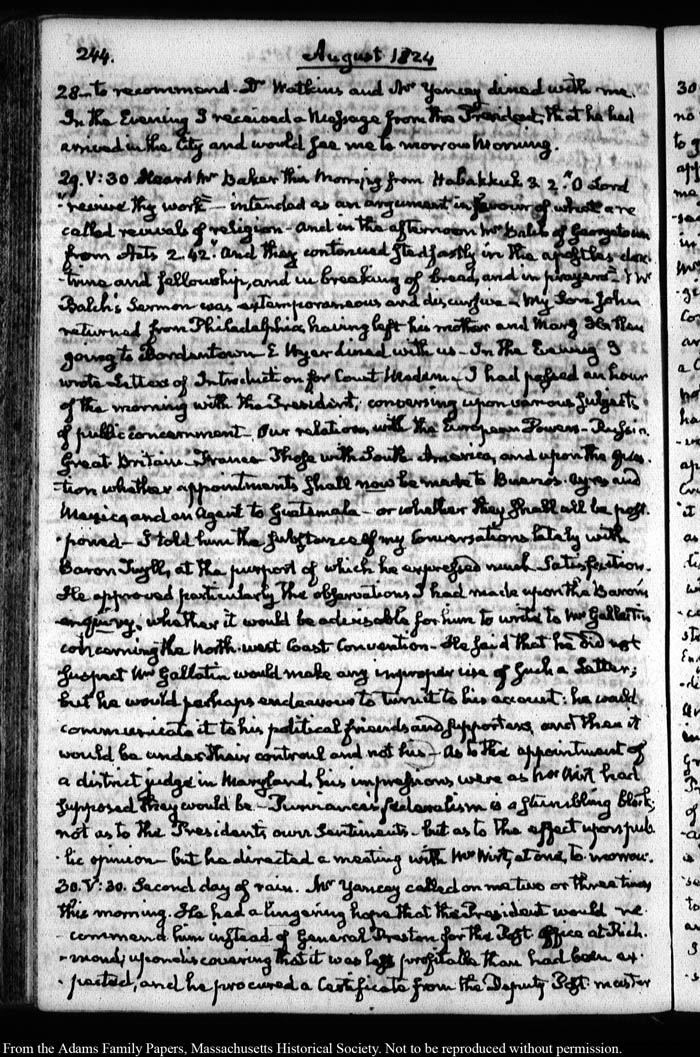 244. August 1824
28 to recommend. Dr. Watkins and Mr Yancey dined with me.
In the Evening I received a Message from the President, that he had
arrived in the City and would see me to morrow Morning.
29. V:30. Heard Mr Baker this Morning from Habakkuk 3 2. "O Lord
"revive thy work" — intended as an argument in favour of what are
called revivals of religion — and in the afternoon Mr Balch of Georgetown
from Acts 2. 42. "And they continued stedfastly in the apostles doc-
-trine and fellowship, and in breaking of bread, and in prayers" Mr
Balch's Sermon was extemporaneous and discursive — My Son John
returned from Philadelphia, having left his mother and Mary
going to Bordentown E Wyer dined with us — In the Evening I
wrote Letters of Introduction for Count — I had passed an hour
of the morning with the President, conversing upon various subjects
of public concernment — Our relations with the European Powers — Russia.
Great Britain — France Those with South America, and upon the ques-
-tion whether appointments shall now be made to Buenos-Ayres and
Mexico, and an Agent to Guatemala — or whether they shall all be post-
-poned — I told him the substance of my Conversations lately with
Baron Tuyll, at the purport of which he expressed much satisfaction.
He approved particularly the observations I had made upon the Baron's
enquiry, whether it would be adviseable for him to write to Mr Gallatin
concerning the North-west Coast Convention — He said that he did not
suspect Mr Gallatin would make any improper use of such a Letter;
but he would perhaps endeavour to turn it to his account: he would
communicate it to his political friends and supporters, and then it
would be under their controul and not his — As to the appointment of
a district judge in Maryland, his impressions were as Mr Wirt had
supposed they would be — federalism is a stumbling block;
not as to the President's own Sentiments — but as to the effect upon pub-
-lic opinion — but he directed a meeting with Mr Wirt, at one, to-morrow.
30. V:30. Second day of rain. Mr Yancey called on me two or three times
this morning. He had a lingering hope that the President would re-
-commend him instead of General Preston for the Post Office at Rich-
-mond; upon discovering that it was less profitable than had been ex-
-pected, and he procured a Certificate from the Deputy Post-master
From the Adams Family Papers, Massachusetts Historical Society. Not to be reproduced without permission.